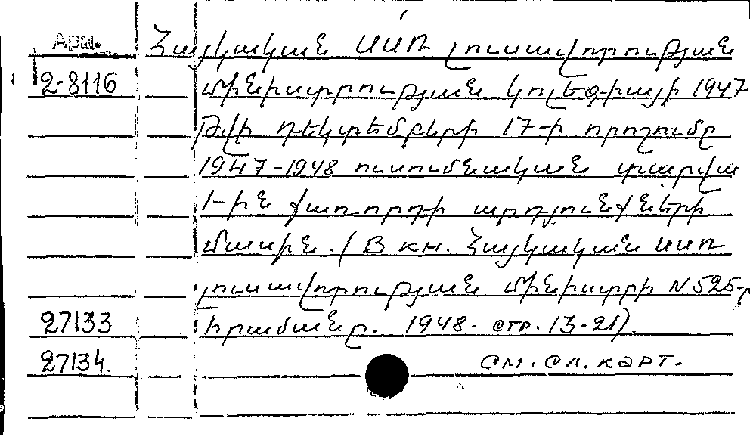 Арм. Հայկական ՍՍՌ լուսավորության
2-8116 մինիստրության կոլեգիայի 1947
թվի դեկտեմբերի 17-ի որոշումը
1947-1948 ուսումնական տարվա
1-ին քառորդի արդյունքների
մասին. (В кн. Հայկական ՍՍՌ
լուսավորության մինիստրի N 525-
27133 հրամանը. 1948. стр. 13-21).
27134. см. сл. карт.